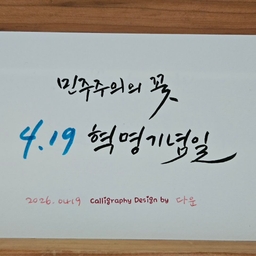 민주주의의 꽃
4.19 혁명기념일
2026. 04.19 Calligraphy Design by 다온